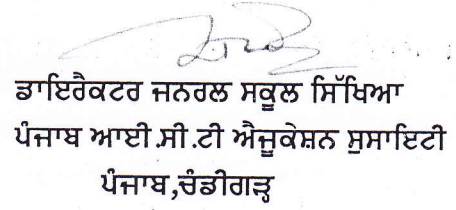 ਡਾਇਰੈਕਟਰ ਜਨਰਲ ਸਕੂਲ ਸਿੱਖਿਆ
ਪੰਜਾਬ ਆਈ.ਸੀ.ਟੀ ਐਜੂਕੇਸ਼ਨ ਸੁਸਾਇਟੀ
ਪੰਜਾਬ,ਚੰਡੀਗੜ੍ਹ